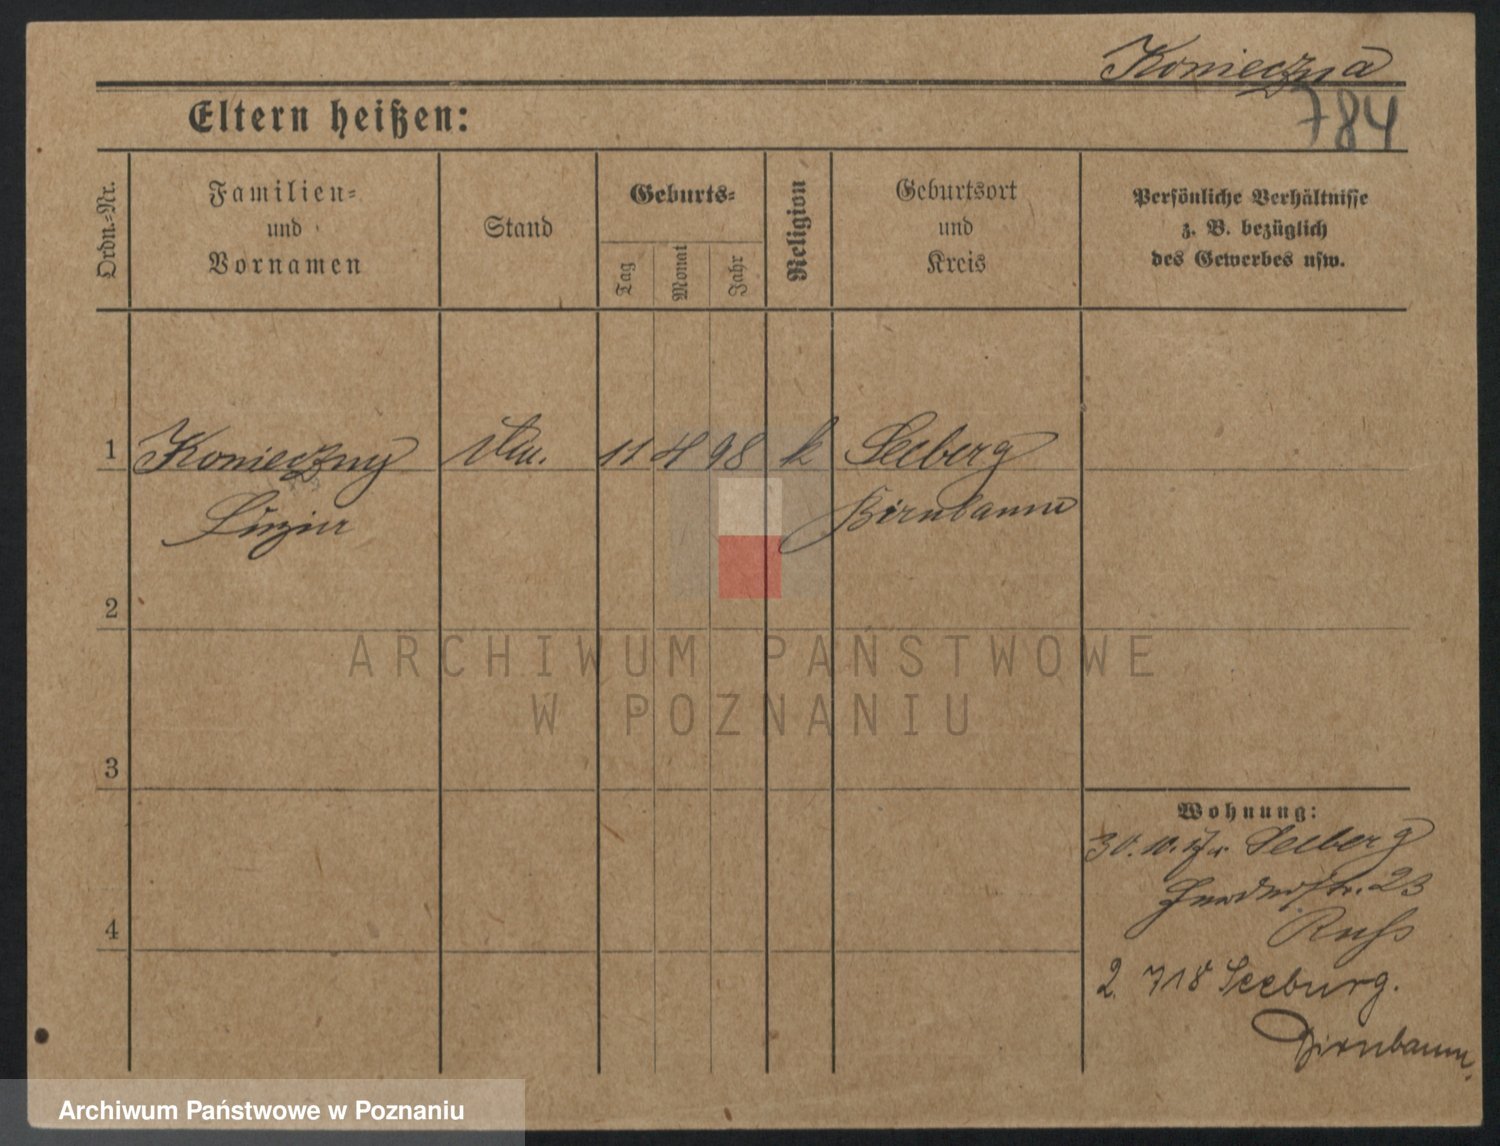 Konieczna
784
Eltern heißen:
Ordn.-Nr.
Familien-
und
Vornamen
Stand
Geburts-
Tag
Monat
Jahr
Religion
Geburtsort
und
Kreis
Persönliche Verhältnisse
z. B. bezüglich
des Gewerbes usw.
1 Konieczny 11 4 98 k Seeberg
Birnbaum
2
ARCHIWUM PAŃSTWOWE
W POZNANIU
3
Wohnung:
30. 10. Seeberg
23
4
2. 718 Seeburg.
Birnbaum.
Archiwum Państwowe w Poznaniu